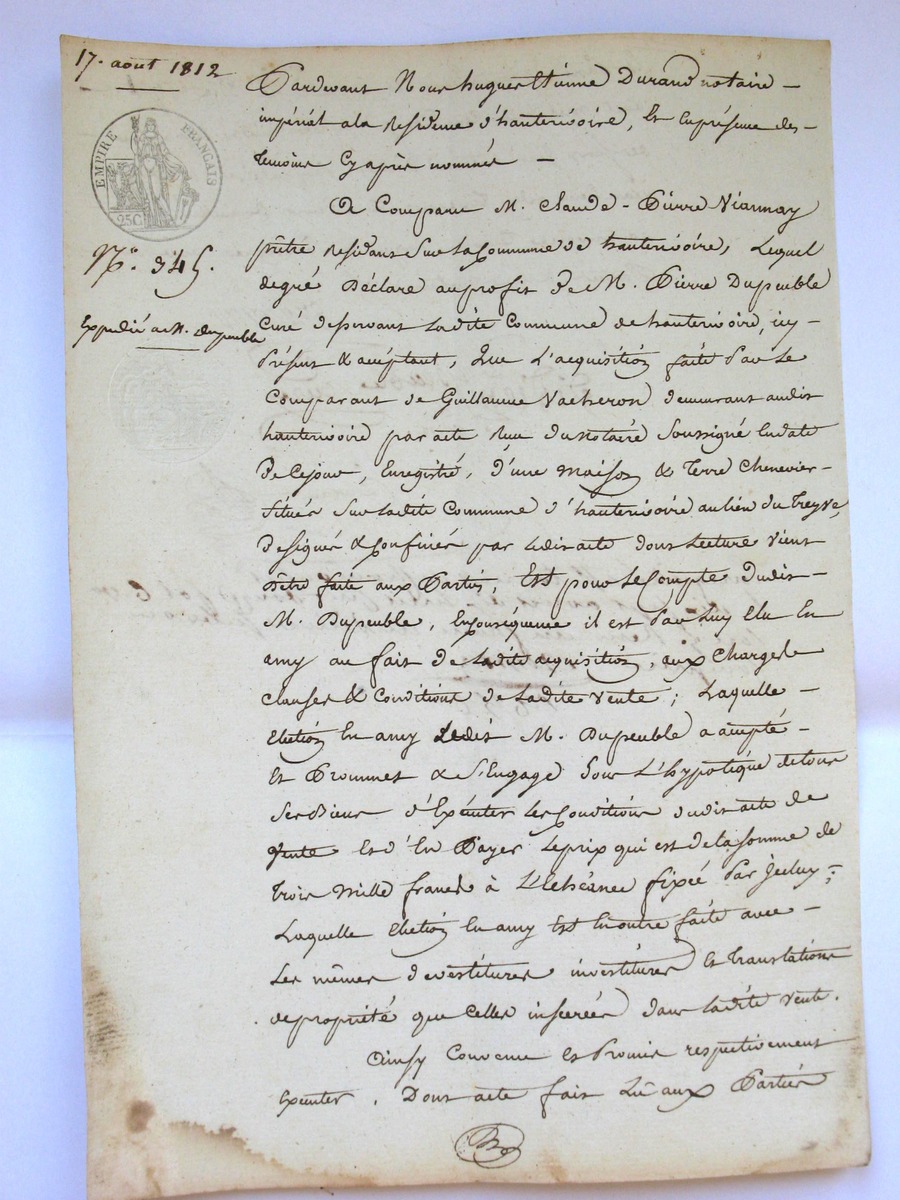 17. août 1812
EMPIRE FRANÇAIS
25C
N.° 345.
Expedié a M. dupeuble
Pardevant Nous hugues Etienne Durand notaire –
impérial a la Residence d'hauterivoire, Et En présence des –
temoins Cy après nommés –
A Comparu M. Claude – Pierre Viannay
prêtre Residant Sur La Commune de hauterivoire, Lequel
de gré Déclare au profit De M. Pierre Dupeuble
Curé desservant Ladite Commune de hauterivoire, icy
Présent & acceptant, Que L'acquisition faite Par Le
Comparant de Guillaume Vacheron demeurant audit
hauterivoire par acte Reçu du notaire Soussigné En date
De Cejour, Enregistré, d'une maison & Terre Chenevier –
Situés Sur Ladite Commune d'hauterivoire au lieu du Treyve,
Designés & Confinés par Ledit acte dont Lecture vient
d'être faite aux Parties, Est pour Le Compte dudit –
M. Dupeuble, En Conséquence il est Par Luy Elu En
amy au fait de Ladite acquisition, aux Charges
Clauses & Conditions de Ladite Vente; Laquelle –
Election En amy Ledit M. Dupeuble a accepté –
Et Prommet & S'Engage Sous L'hypotèque de tous
Ses Biens d'Exécuter Les Conditions dudit acte de
Vente Et d'En Payer Le prix qui est de la somme de
Trois Mille francs à L'Echéance fixée Par Jceluy;
Laquelle Election En amy Est En outre faite avec –
Les mêmes devestitures investitures Et Translations
de propriété que Celles insérées dans Ladite Vente.
Ainsy Convenu et Promis respectivement
Exécuter. Dont acte fait Lû aux Parties